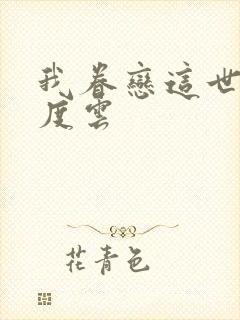 我眷戀這世
度雲
花青色